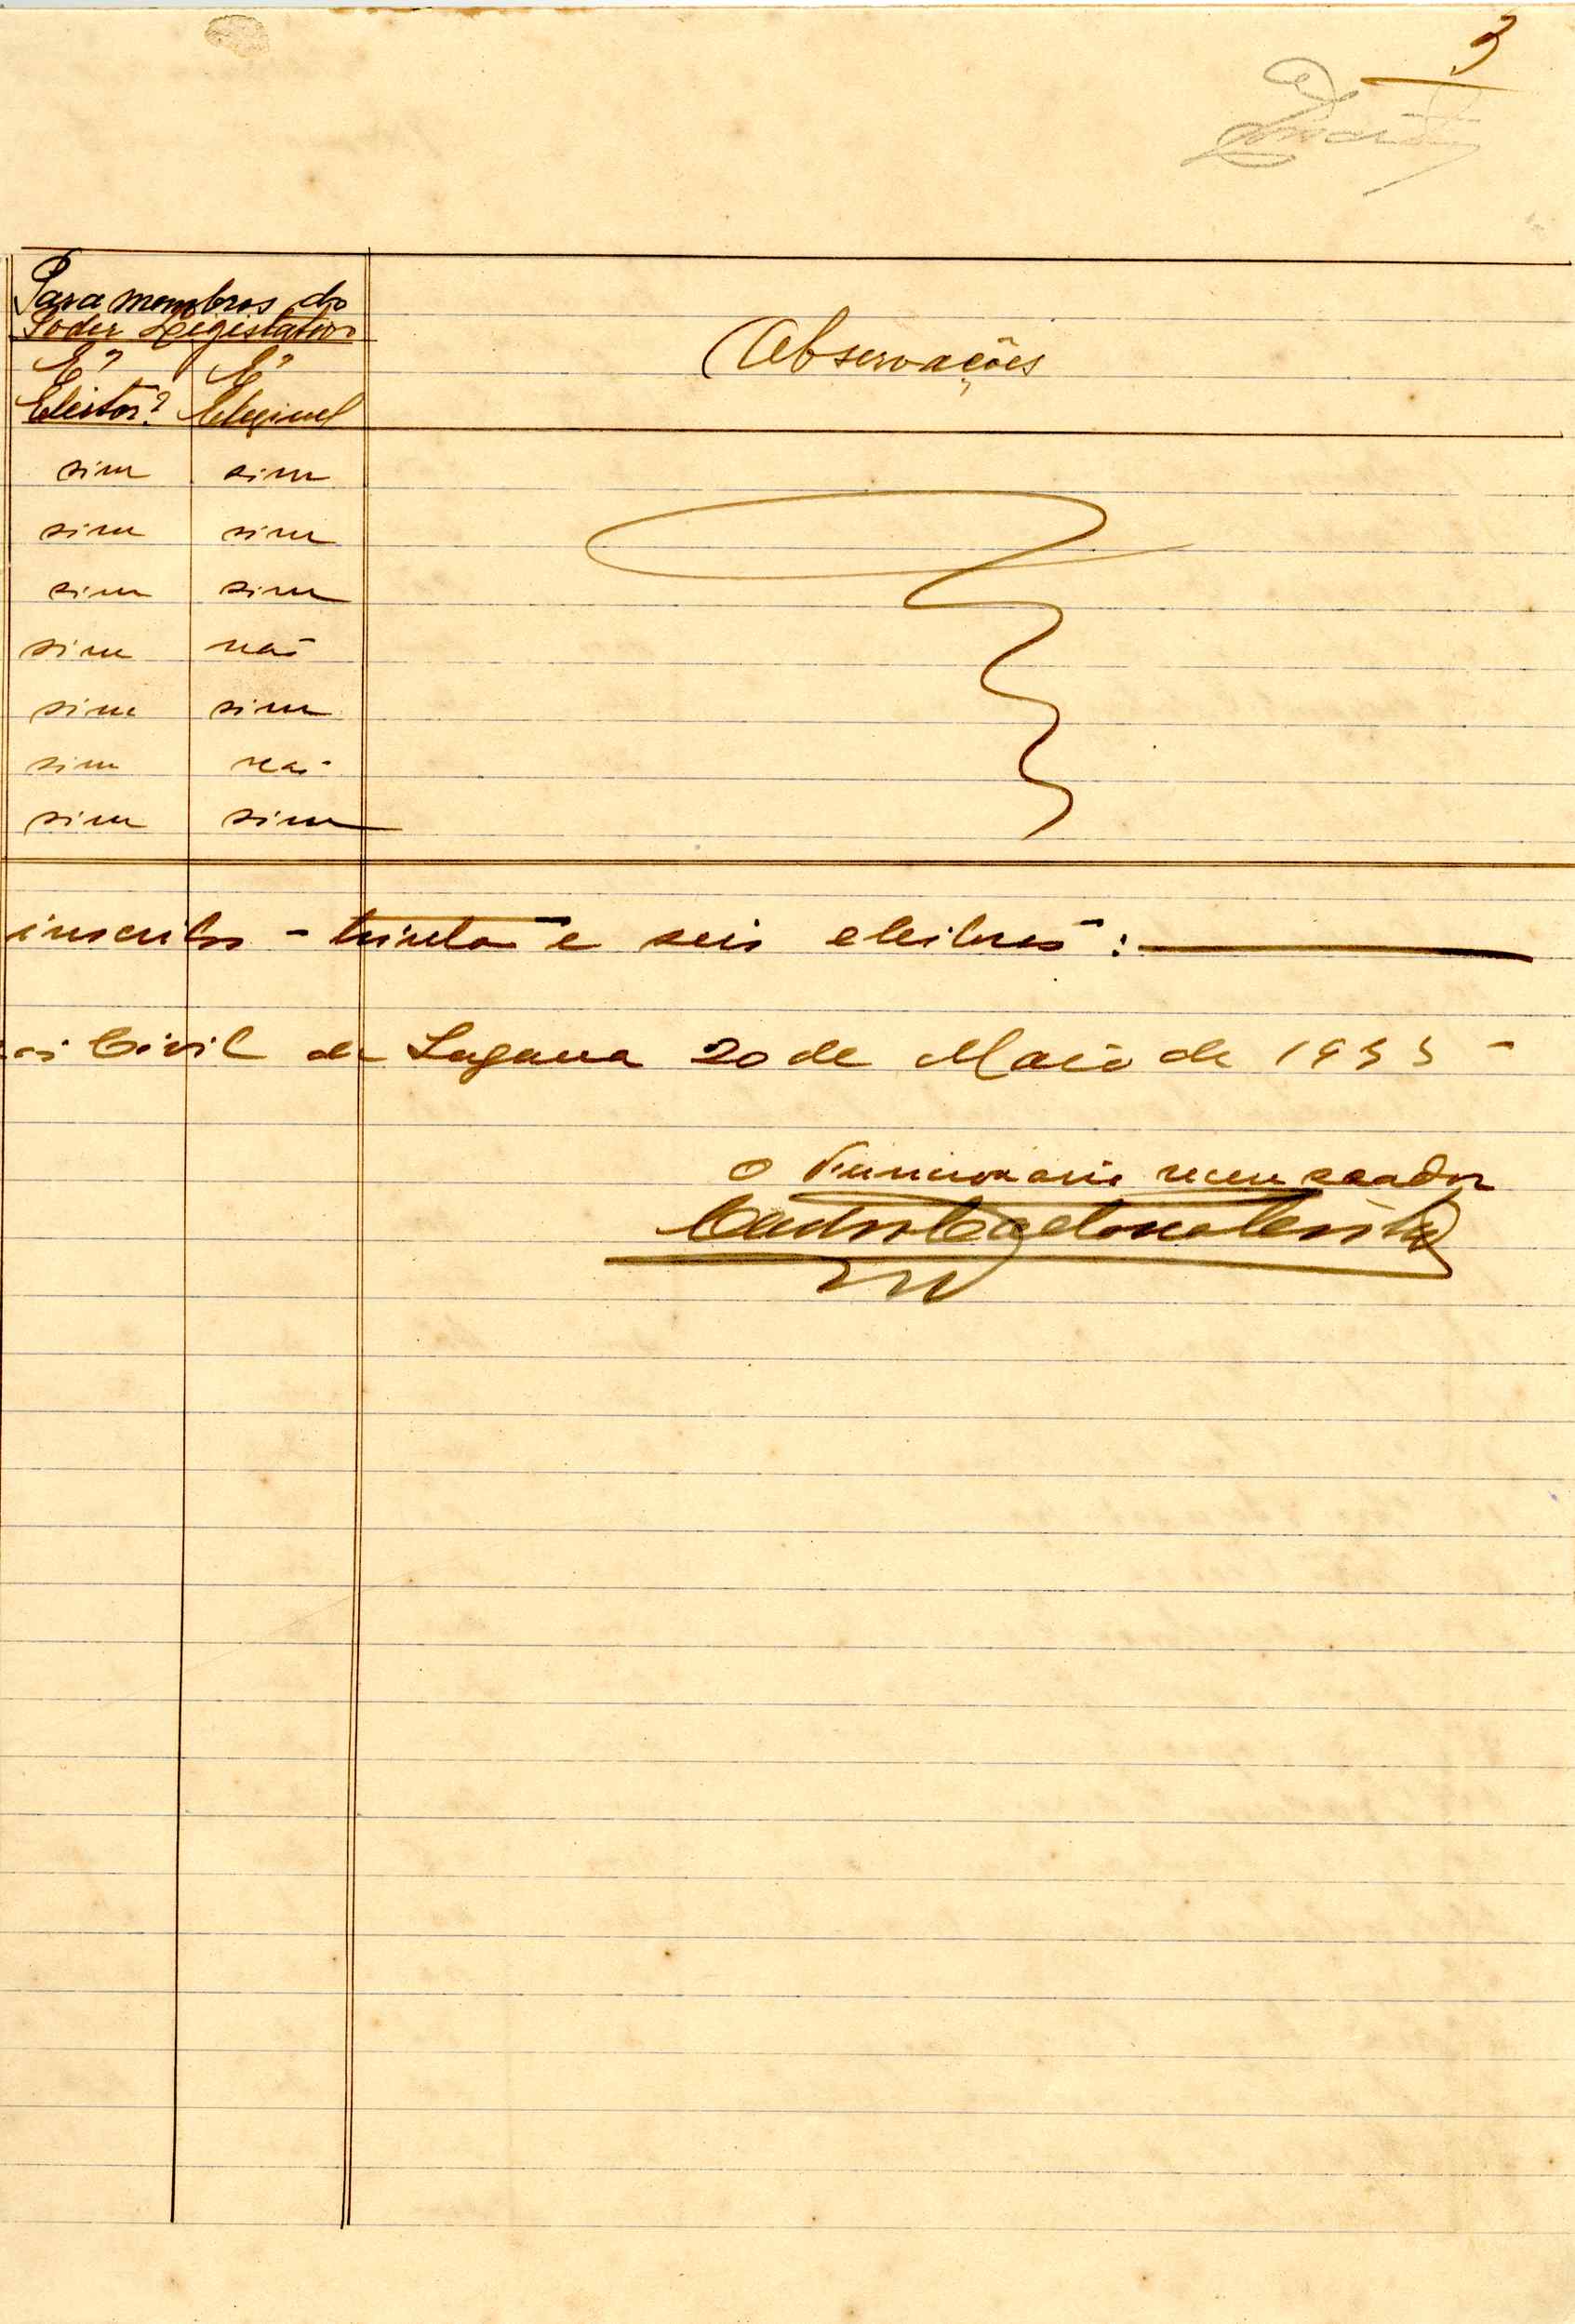 3
Para membros do
Poder Legislativo
É? É?
Eleitor? Elegivel
Observações
sim sim
sim sim
sim sim
sim não
sim sim
sim não
sim sim
inscritos - trinta e seis eleitores :
Civil de Lagoa 20 de Maio de 1933 -
O funcionario recenseador